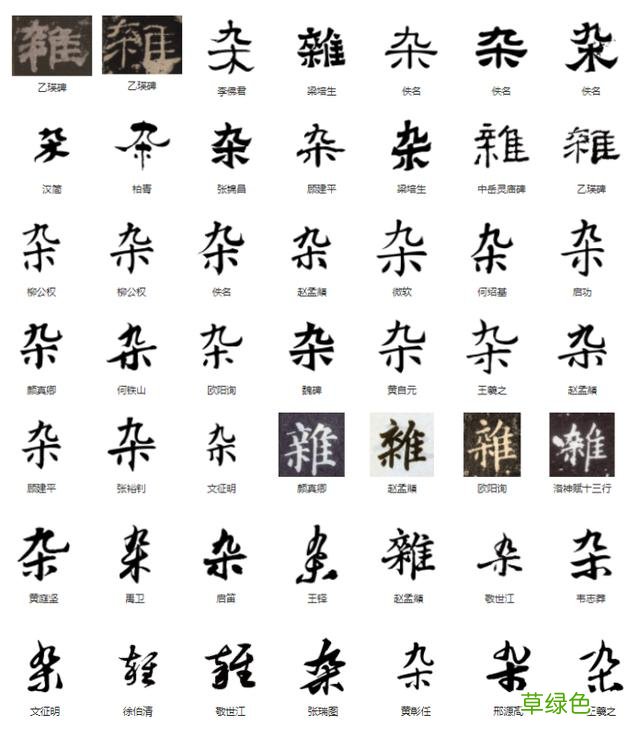 雜 雜 杂 雜 杂 杂 杂
乙瑛碑 乙瑛碑 李佛君 梁培生 佚名 佚名 佚名
杂 杂 杂 杂 杂 雜 雜
汉简 柏青 张锦昌 顾建平 梁培生 中岳灵庙碑 乙瑛碑
杂 杂 杂 杂 杂 杂 杂
柳公权 柳公权 佚名 赵孟頫 微软 何绍基 启功
杂 杂 杂 杂 杂 杂 杂
颜真卿 何铁山 欧阳询 魏碑 黄自元 王羲之 赵孟頫
杂 杂 杂 雜 雜 雜 雜
顾建平 张裕钊 文征明 颜真卿 赵孟頫 欧阳询 洛神赋十三行
杂 杂 杂 杂 雜 杂 杂
黄庭坚 禹卫 启笛 王铎 赵孟頫 敬世江 韦志莽
杂 雜 雜 杂 杂 杂 杂
文征明 徐伯清 敬世江 张瑞图 黄彰任 邢源高 王羲之
草绿色